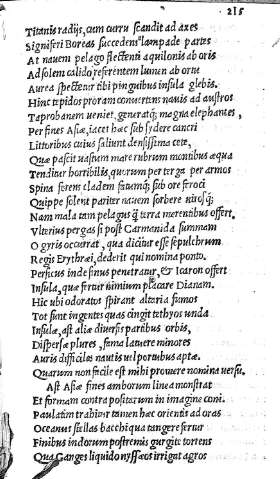 215
Titanis radijs, cum curru scandit ad axes
Signiferi Boreas succedens lampade partes
At nauem pelago flectenti aquilonis ab oris
Ad solem calido referentem lumen ab ortu
Aurea spectetur tibi pinguibus insula glebis.
Hinc tepidos proram conuertens nauis ad austros
Taprobanem ueniet, generatq; magna elephantes,
Per fines Asiæ, iacet hæc sub sydere cancri
Littoribus cuius saliunt densissima cete,
Quæ pascit uastum mare rubrum montibus æqua
Tenditur horribilis, quorum per terga per armos
Spina ferens cladem fatumq; sub ore feroci
Quippe solent pariter nauem sorbere uirosq;
Nam mala tam pelagus q̃ terra merentibus offert.
Vlterius pergas si post Carmanida summam
Ogyris occurrat, qua dicitur esse sepulchrum
Regis Erythræi, dederit qui nomina ponto.
Persicus inde sinus penetratur, & Icaron offert
Insula, quæ fertur nimium placare Dianam.
Hic ubi odoratos spirant altaria fumos
Tot sunt ingentes quas cingit tethyos unda
Insulæ, ast aliæ diuersis partibus orbis,
Dispersæ plures, fama latuere minores
Auris difficiles nautis uel portubus aptæ.
Quarum non facile est mihi promere nomina uersu.
Ast Asiæ fines amborum linea monstrat
Et formam contra positarum in imagine coni.
Paulatim trahitur tamen hæc orientis ad oras
Oceanus stellas bacchi qua tangere fertur
Finibus indorum postremis gurgite torrens
Qua Ganges liquido nyssæos irrigat agros